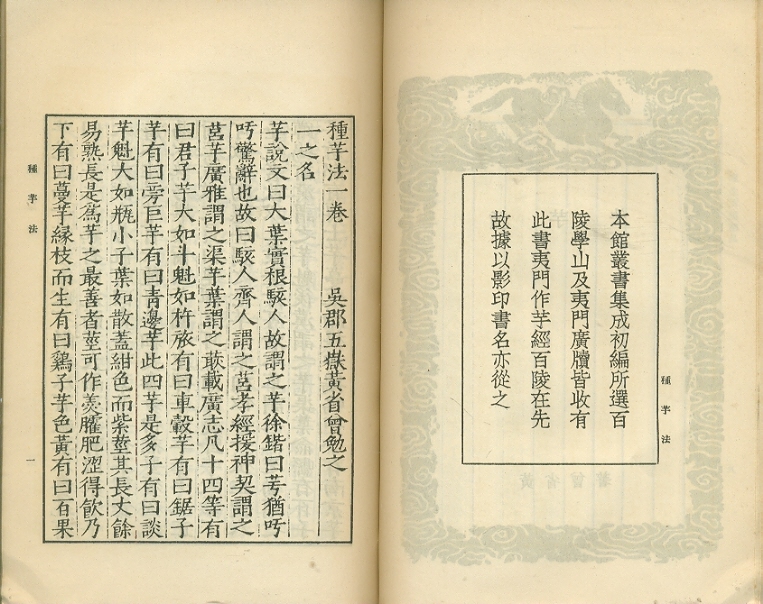 本館叢書集成初編所選百
陵學山及夷門廣牘皆收有
此書夷門作芋經百陵在先
故據以影印書名亦從之
種芋法
種芋法一卷　吳郡五嶽黃省曾勉之
一之名
芋說文曰大葉實根駭人故謂之芋徐鍇曰芌猶吁
吁驚辭也故曰駭人齊人謂之莒孝經援神契謂之
莒芋廣雅謂之渠芋葉謂之䓈載廣志凡十四等有
曰君子芋大如斗魁如杵旅有曰車轂芋有曰鋸子
芋有曰旁巨芋有曰青邊芋此四芋是多子有曰談
芋魁大如瓶小子葉如散蓋紺色而紫莖其長丈餘
易熟長是爲芋之最善者莖可作羹臛肥澀得飲乃
下有曰蔓芋緣枝而生有曰鷄子芋色黃有曰百果
種芋法
一